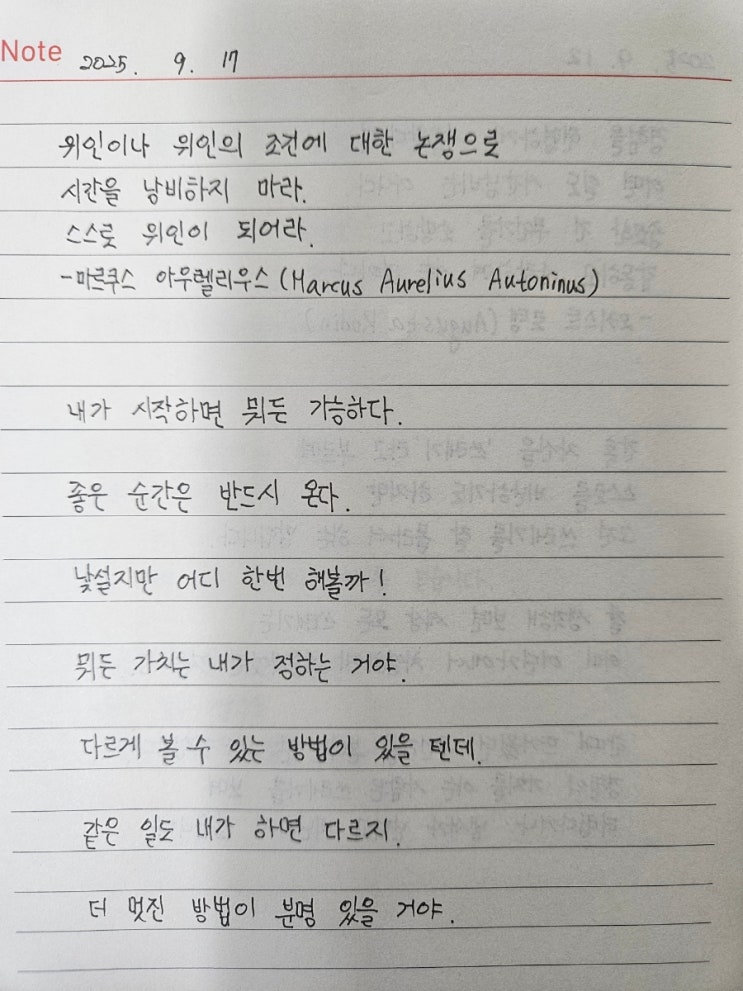 Note 2025. 9. 17
위인이나 위인의 조건에 대한 논쟁으로
시간을 낭비하지 마라.
스스로 위인이 되어라.
-마르쿠스 아우렐리우스 (Marcus Aurelius Autoninus)
내가 시작하면 뭐든 가능하다.
좋은 순간은 반드시 온다.
낯설지만 어디 한번 해볼까!
뭐든 가치는 내가 정하는 거야.
다르게 볼 수 있는 방법이 있을 텐데.
같은 일도 내가 하면 다르지.
더 멋진 방법이 분명 있을 거야.